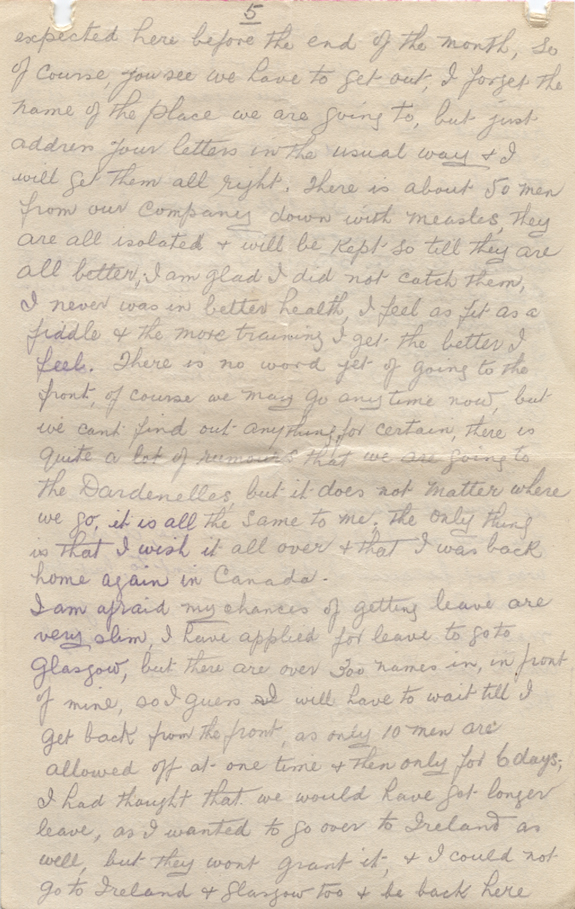 5
expected here before the end of the month, so
of course, you see we have to get out, I forget the
name of the place we are going to, but just
address your letters in the usual way & I
will get them all right. There is about 50 men
from our Company down with measles, they
are all isolated & will be kept so till they are
all better, I am glad I did not catch them,
I never was in better health, I feel as fit as a
fiddle & the more training I get the better I
feel. There is no word yet of going to the
front, of course we may go any time now, but
we cant find out anything for certain, there is
quite a lot of rumours that we are going to
the Dardenelles, but it does not matter where
we go, it is all the same to me, the only thing
is that I wish it all over & that I was back
home again in Canada.
I am afraid my chances of getting leave are
very slim, I have applied for leave to go to
Glasgow, but there are over 300 names in, in front
of mine, so I guess I will have to wait till I
get back from the front, as only 10 men are
allowed off at one time & then only for 6 days,
I had thought that we would have got longer
leave, as I wanted to go over to Ireland as
well, but they wont grant it, & I could not
go to Ireland & Glasgow too & be back here